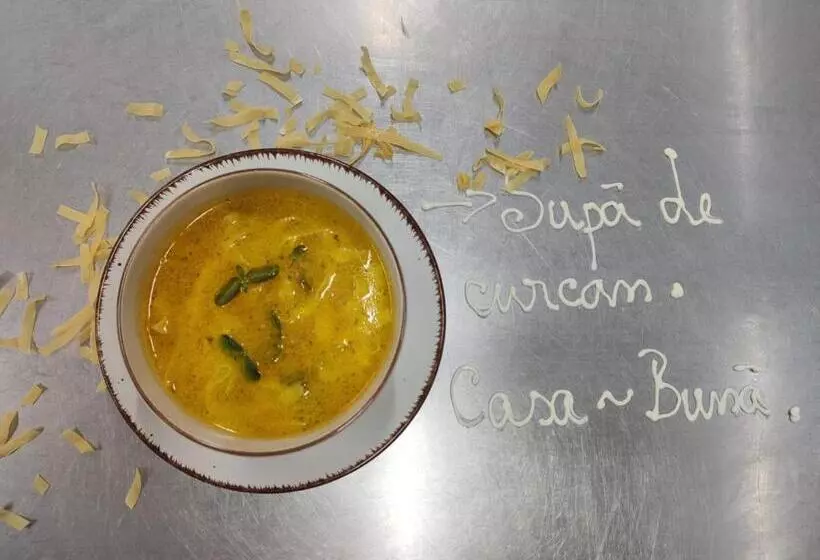 → Supă de
curcan.
Casa ~ Bună.